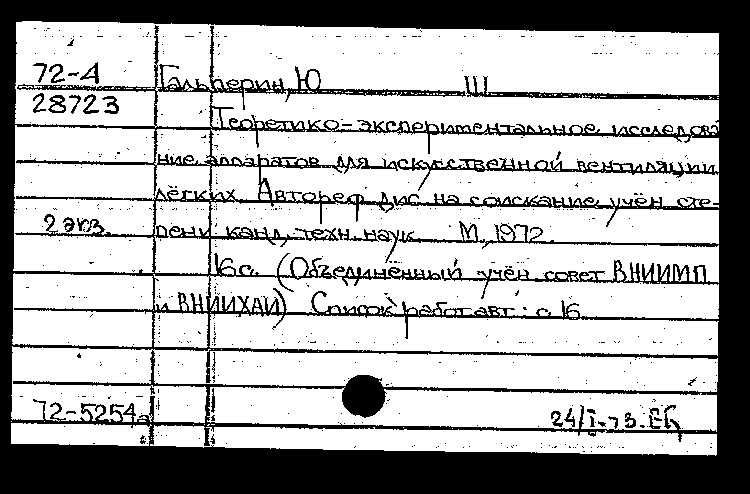 72-А Гальперин, Ю Ш
28723 Теоретико-экспериментальное исследова
ние аппаратов для искусственной вентиляции
лёгких. Автореф дис на соискание учён сте-
2 экз. пени канд. техн. наук. М., 1972.
16 с. (Объединённый учён совет ВНИИМП
и ВНИИХАИ) Список работ авт: с 16
72-5254а 24/I-73.